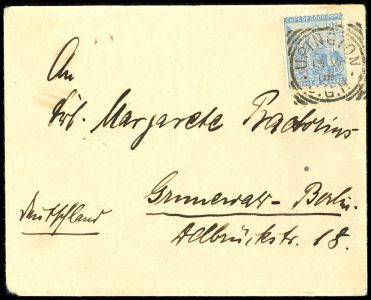 CAPE OF GOOD HOPE
UPINGTON
An
Frl. Margarete Pradorius
Grunewald - Berlin.
Deutschland
Delbrückstr. 18.